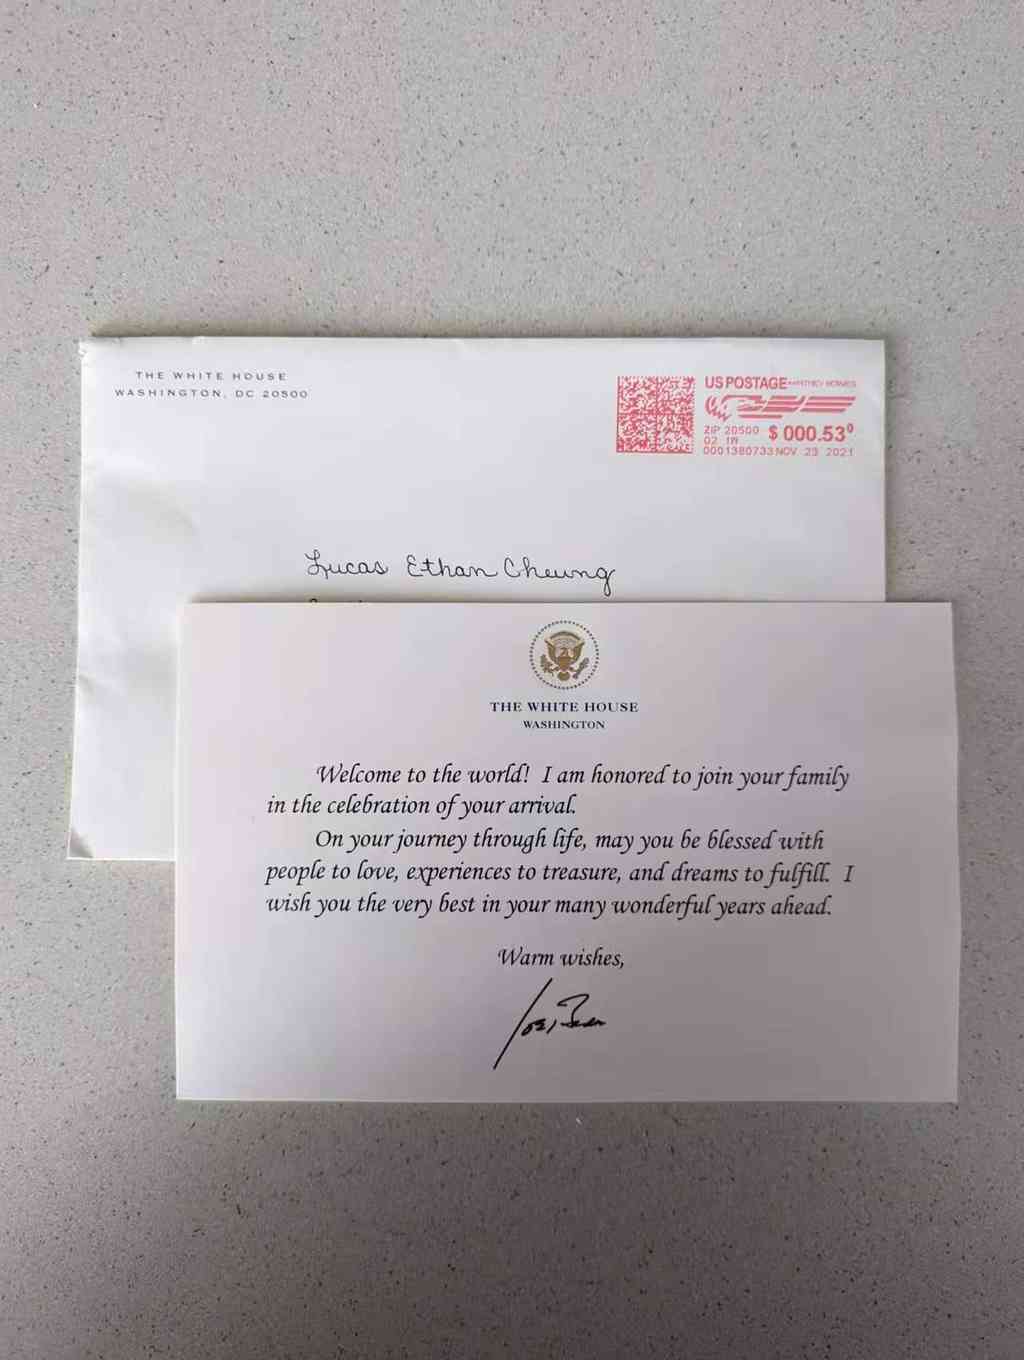 THE WHITE HOUSE
WASHINGTON, DC 20500
US POSTAGE
ZIP 20500 $ 000.53⁰
02 1W
0001380733 NOV 23 2021
Lucas Ethan Cheung
THE WHITE HOUSE
WASHINGTON
Welcome to the world! I am honored to join your family
in the celebration of your arrival.
On your journey through life, may you be blessed with
people to love, experiences to treasure, and dreams to fulfill. I
wish you the very best in your many wonderful years ahead.
Warm wishes,